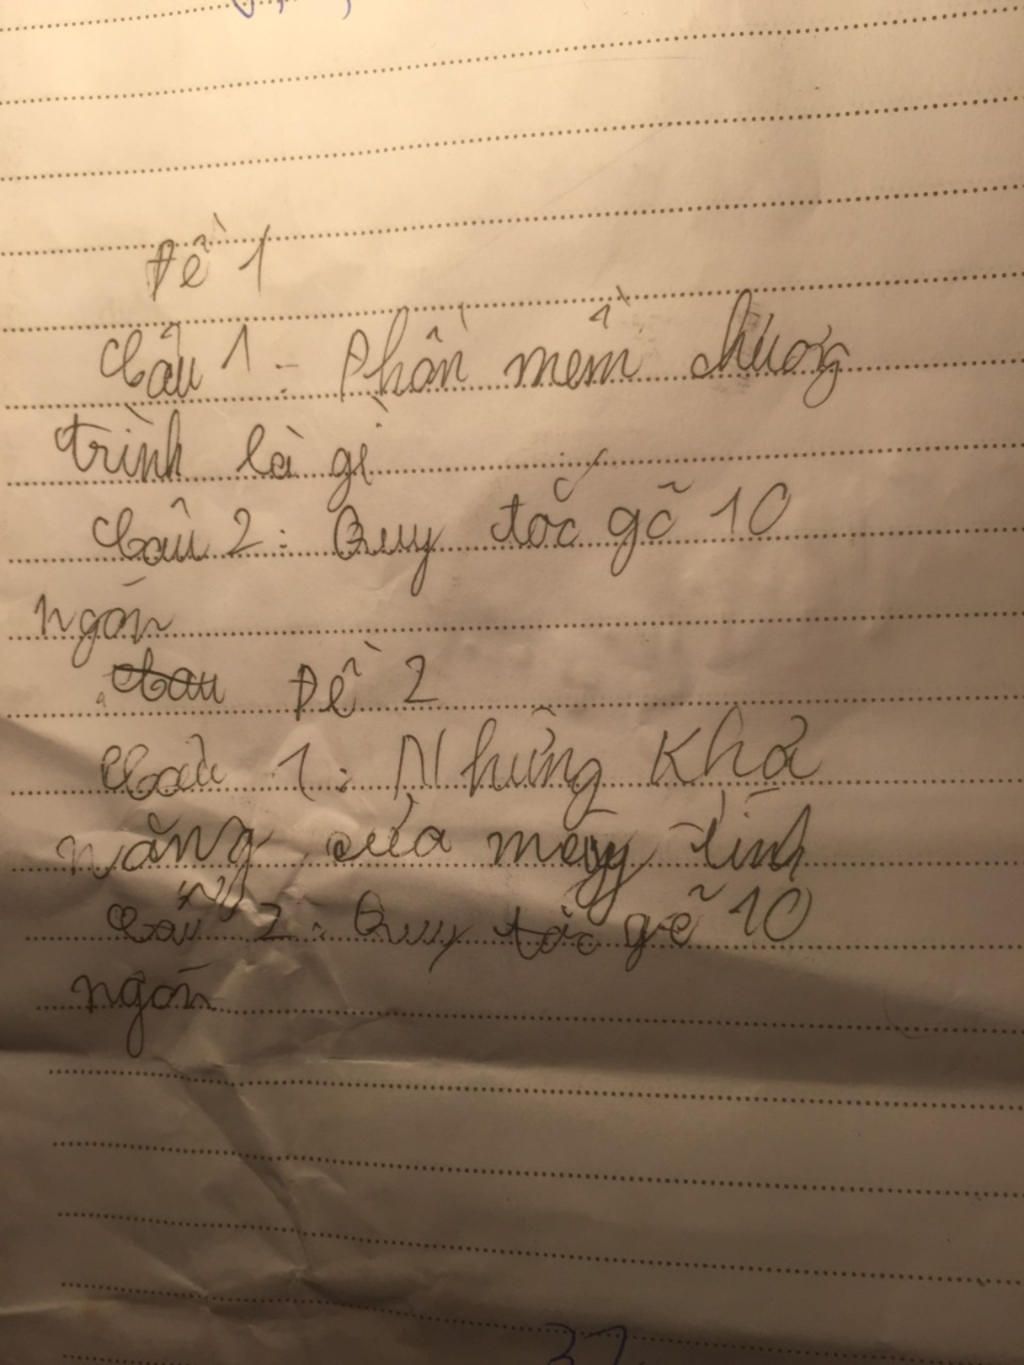 Đề 1
Câu 1 : Phần mềm chương
trình là gì
Câu 2 : Quy tắc gõ 10
ngón
Đề 2
Câu 1 : Những khả
năng của máy tính
Câu 2 : Quy tắc gõ 10
ngón